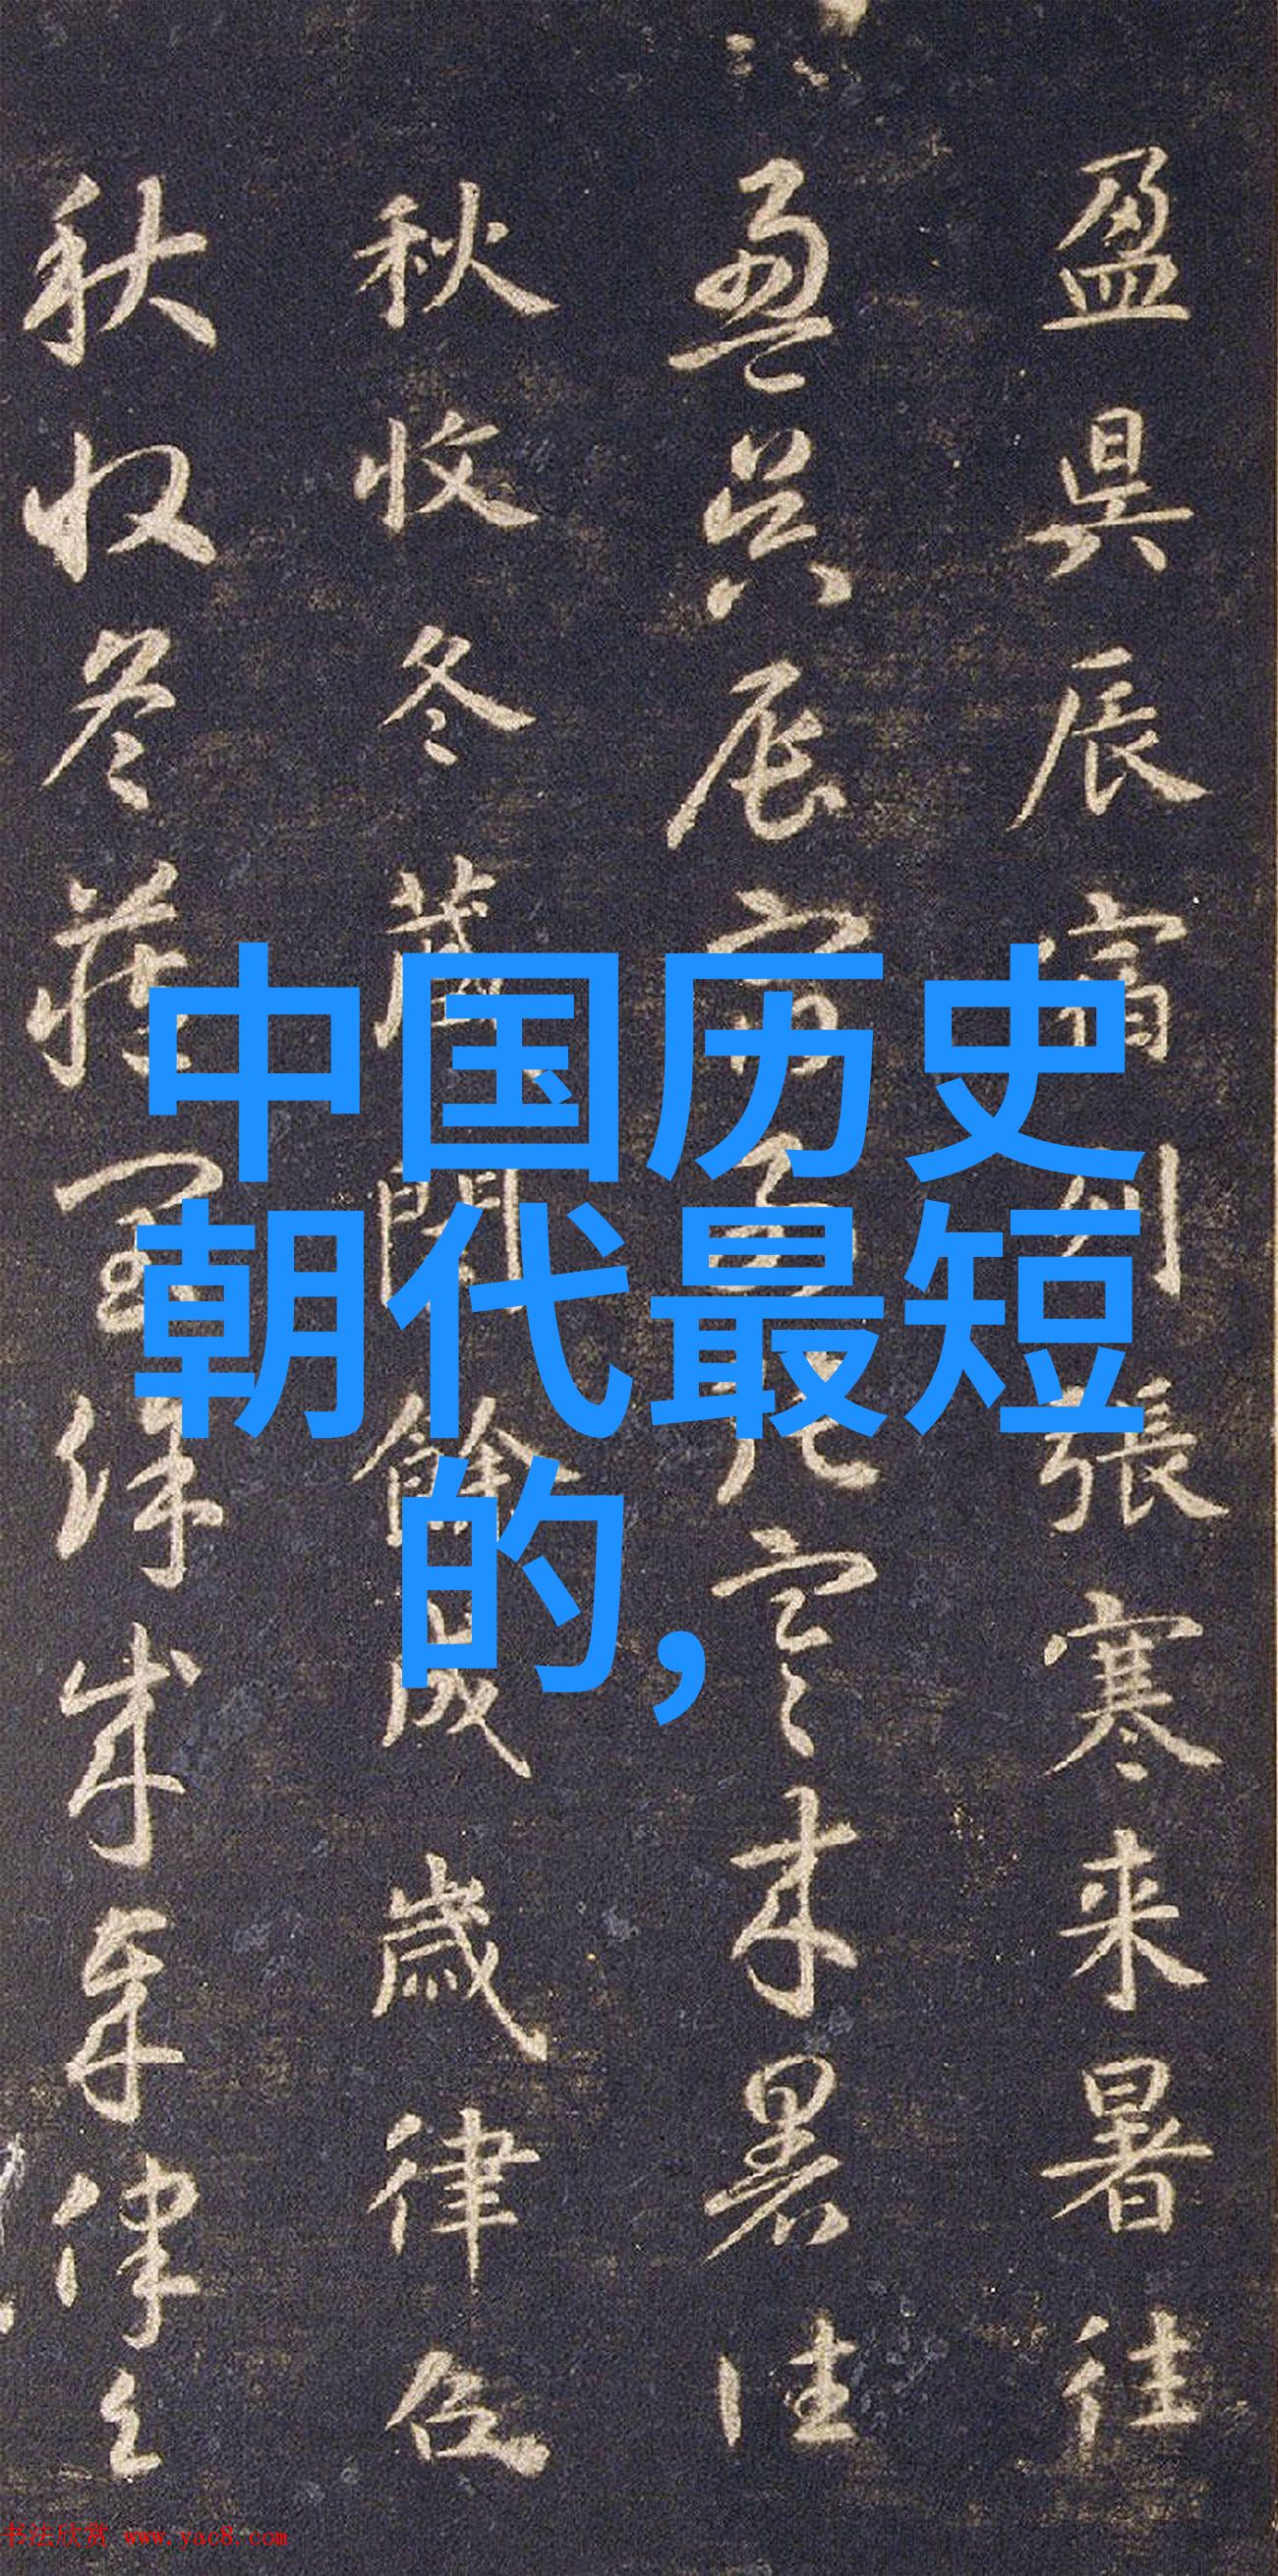 中国历史
朝代最短
的,
盈昃辰宿列張寒来暑往
盈昃辰宿列張寒来暑往
秋收冬藏閏餘成歲律召
秋收冬藏閏餘成歲律召
书法欣赏 www.yac8.com